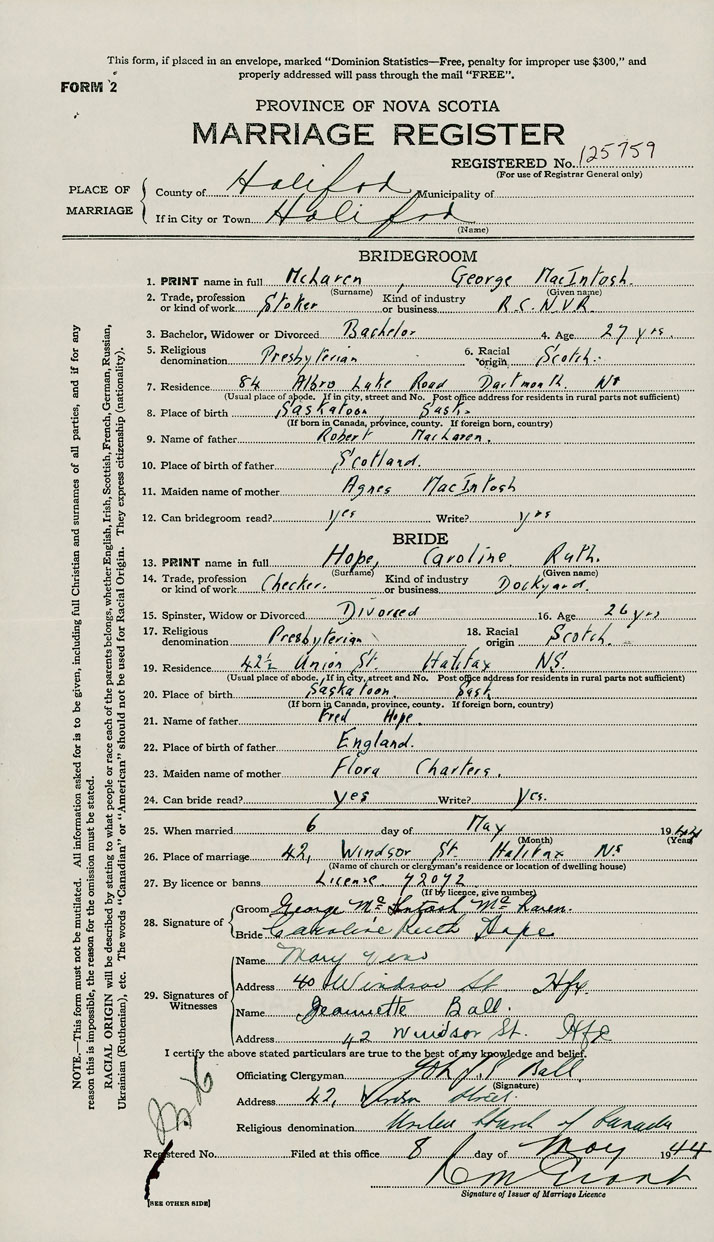 This form, if placed in an envelope, marked "Dominion Statistics—Free, penalty for improper use $300," and
properly addressed will pass through the mail "FREE".
FORM 2
PROVINCE OF NOVA SCOTIA
MARRIAGE REGISTER
REGISTERED No. 125759
(For use of Registrar General only)
PLACE OF MARRIAGE
County of Halifax Municipality of
If in City or Town Halifax
(Name)
BRIDEGROOM
1. PRINT name in full McLaren, George MacIntosh.
(Surname) (Given name)
2. Trade, profession or kind of work Stoker Kind of industry or business R.C.N.V.R.
3. Bachelor, Widower or Divorced Bachelor 4. Age 27 yrs.
5. Religious denomination Presbyterian 6. Racial origin Scotch.
7. Residence 84 Albro Lake Road Dartmouth NS
(Usual place of abode. If in city, street and No. Post office address for residents in rural parts not sufficient)
8. Place of birth Saskatoon Sask.
(If born in Canada, province, county. If foreign born, country)
9. Name of father Robert MacLaren.
10. Place of birth of father Scotland.
11. Maiden name of mother Agnes MacIntosh
12. Can bridegroom read? yes Write? yes
BRIDE
13. PRINT name in full Hope, Caroline Ruth.
(Surname) (Given name)
14. Trade, profession or kind of work Checker. Kind of industry or business Dockyard.
15. Spinster, Widow or Divorced Divorced 16. Age 26 yrs
17. Religious denomination Presbyterian 18. Racial origin Scotch.
19. Residence 42½ Union St. Halifax NS.
(Usual place of abode. If in city, street and No. Post office address for residents in rural parts not sufficient)
20. Place of birth Saskatoon. Sask
(If born in Canada, province, county. If foreign born, country)
21. Name of father Fred Hope.
22. Place of birth of father England.
23. Maiden name of mother Flora Charters.
24. Can bride read? yes Write? yes.
25. When married 6 day of May 1944
(Month) (Year)
26. Place of marriage 42, Windsor St. Halifax NS
(Name of church or clergyman's residence or location of dwelling house)
27. By licence or banns License. 72072
(If by licence, give number)
28. Signature of
Groom George McIntosh McLaren.
Bride Caroline Ruth Hope
29. Signatures of Witnesses
Name Mary
Address 40 Windsor St. Hfx.
Name Jeannette Ball.
Address 42 Windsor St. Hfx
I certify the above stated particulars are true to the best of my knowledge and belief.
Officiating Clergyman Ball
(Signature)
Address 42, Windsor Street.
Religious denomination United Church of Canada
Registered No. Filed at this office 8 day of May 1944
Grant
Signature of Issuer of Marriage Licence
[SEE OTHER SIDE]
NOTE.—This form must not be mutilated. All information asked for is to be given, including full Christian and surnames of all parties, and if for any
reason this is impossible, the reason for the omission must be stated.
RACIAL ORIGIN will be described by stating to what people or race each of the parents belongs, whether English, Irish, Scottish, French, German, Russian,
Ukrainian (Ruthenian), etc. The words "Canadian" or "American" should not be used for Racial Origin. They express citizenship (nationality).